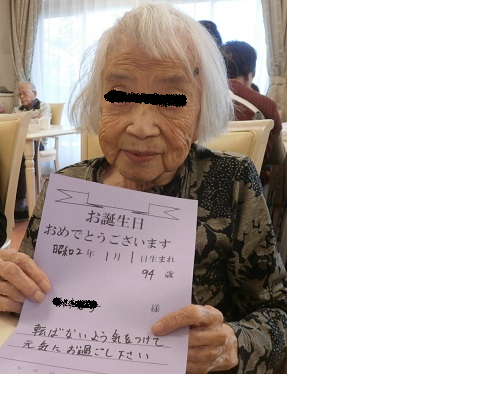 お誕生日
おめでとうございます
昭和2年 1月 1日生まれ
94 歳
様
転ばないよう気をつけて
元気にお過ごし下さい